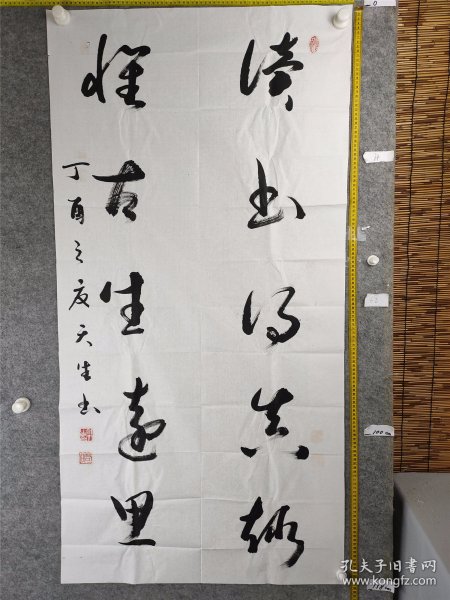 读书得真趣
怀古生远思
丁酉之夜天生书
孔夫子旧书网
www.kongfz.com